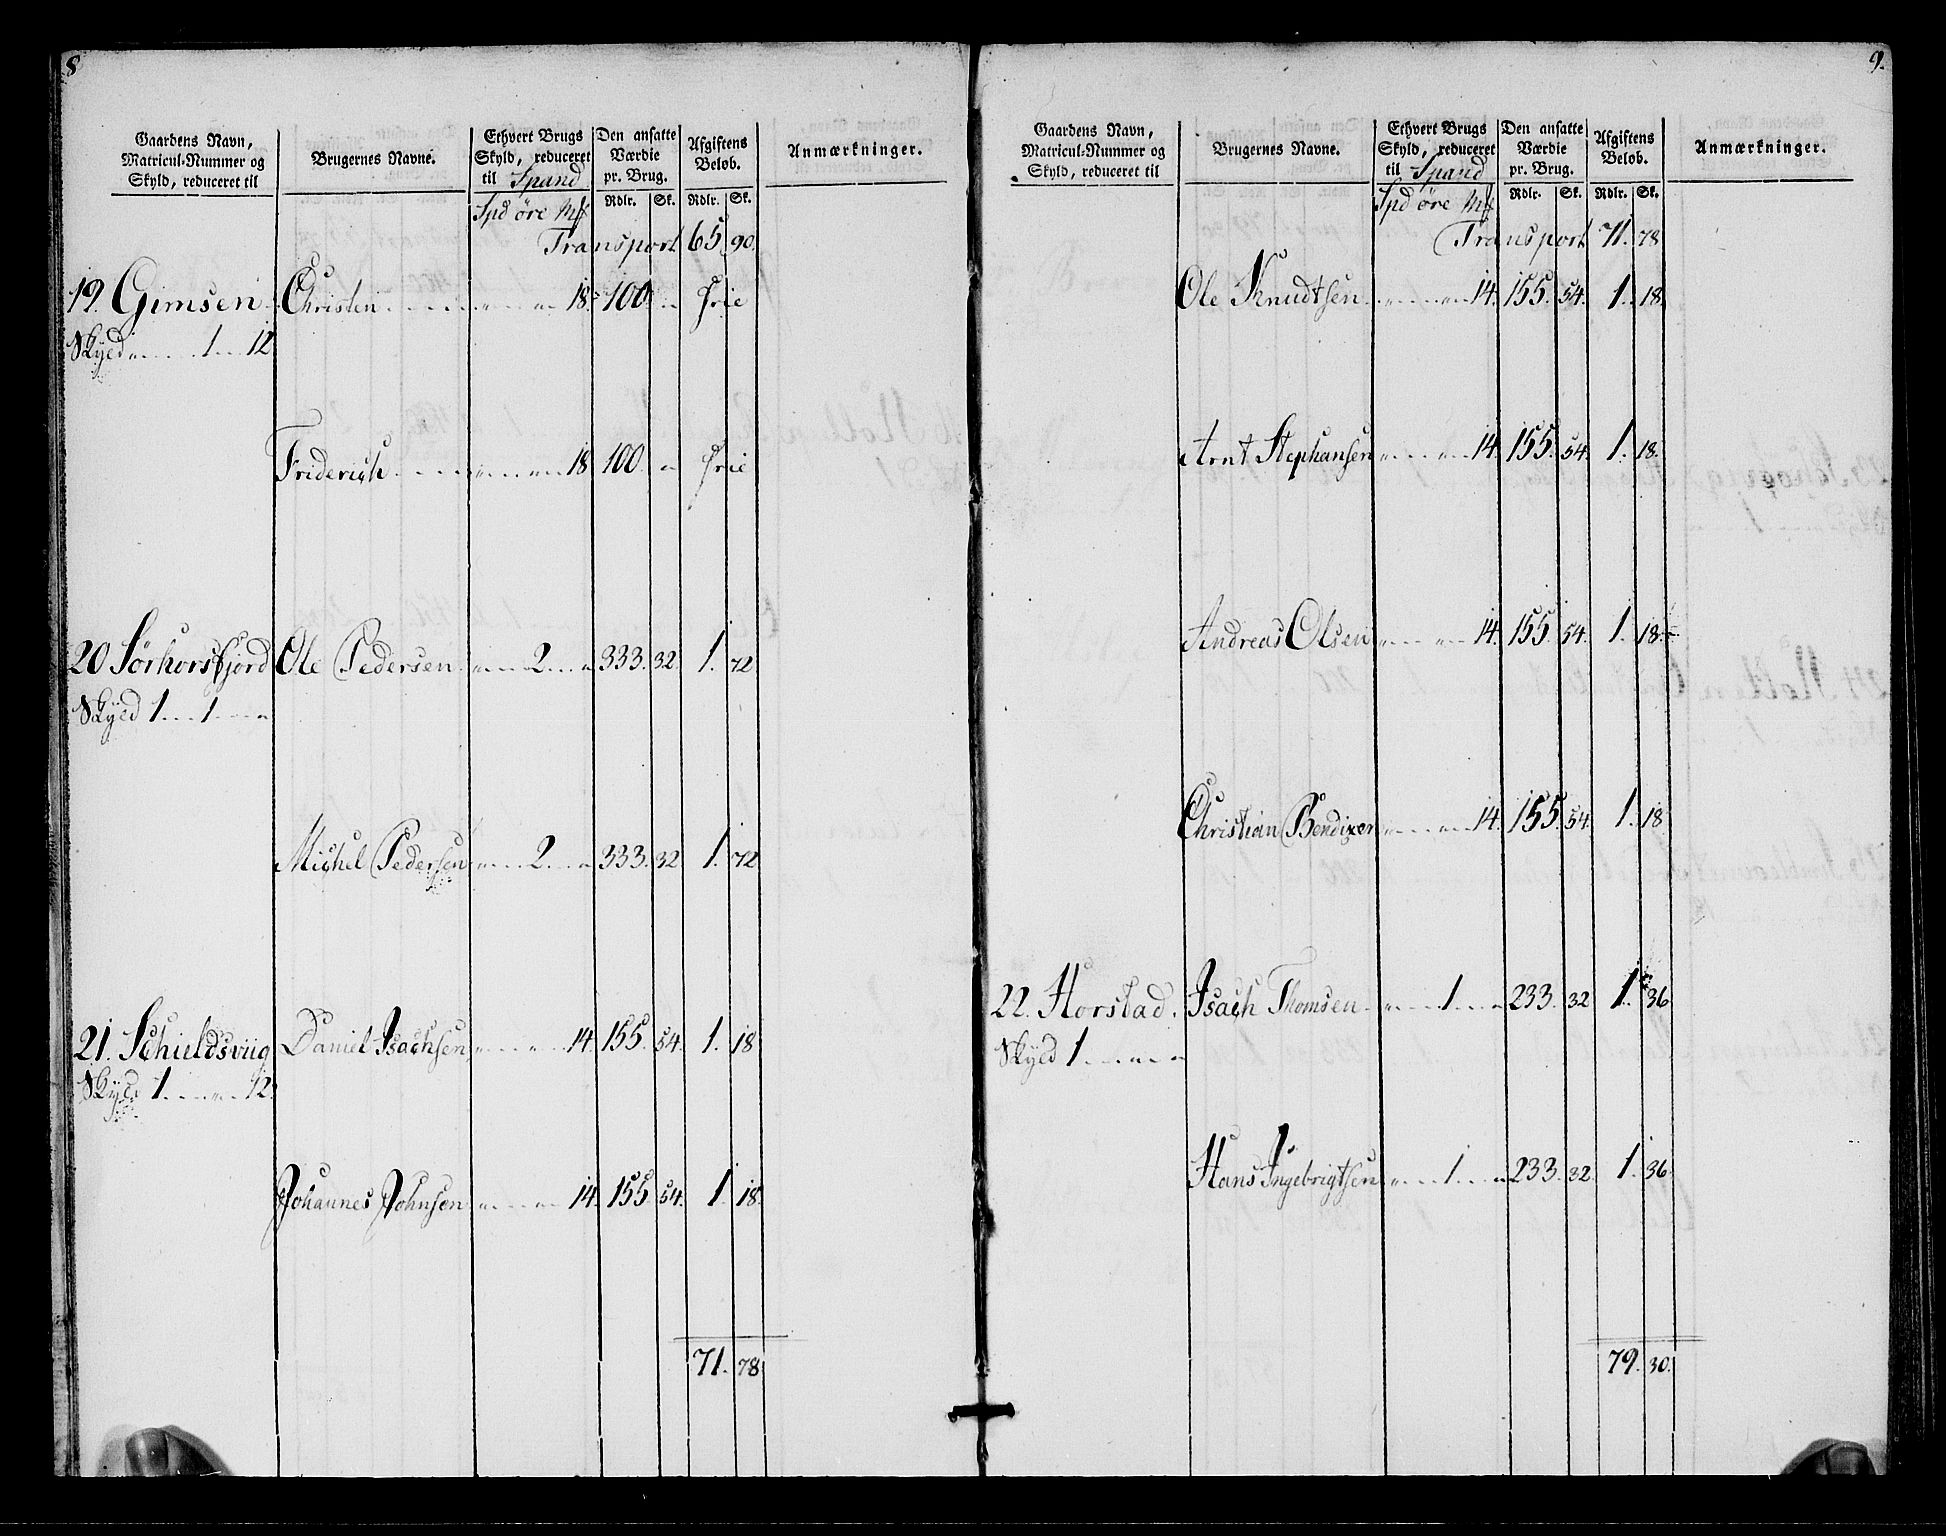 8
Gaardens Navn, Matricul-Nummer og Skyld, reduceret til | Brugernes Navne. | Ethvert Brugs Skyld, reduceret til Spand | Den ansatte Værdie pr. Brug. | Afgiftens Beløb. | Anmærkninger.
Spd öre Mk | Rdlr. | Sk. | Rdlr. | Sk.
Transport 65 90.
19. Gimsen Christen 18 100 " frie
Skyld " 1 12
Friderich 18 100 " frie
20 Sörhorsfjord Ole Pedersen " 2 " 333. 32. 1. 72
Skyld 1 1 "
Michel Pedersen " 2 " 333. 32 1. 72
21. Schieldsviig Daniel Isachsen " " 14. 155. 54. 1. 18
Skyld 1 " 12.
Johannes Johnsen " " 14. 155 54. 1. 18.
71. 78
9.
Gaardens Navn, Matricul-Nummer og Skyld, reduceret til | Brugernes Navne. | Ethvert Brugs Skyld, reduceret til Spand | Den ansatte Værdie pr. Brug. | Afgiftens Beløb. | Anmærkninger.
Spd öre Mk | Rdlr. | Sk. | Rdlr. | Sk.
Transport 71. 78
Ole Knudtsen " " 14. 155. 54. 1. 18.
Arnt Stephansen " " 14. 155. 54. 1. 18.
Andreas Olsen " " 14. 155. 54. 1. 18.
Christian Bendixen " " 14. 155. 54. 1. 18
22. Horstad. Isach Thomsen " 1 " 233. 32 1. 36
Skyld 1 " "
Hans Ingebrigtsen " 1 " 233. 32. 1. 36
79. 30.